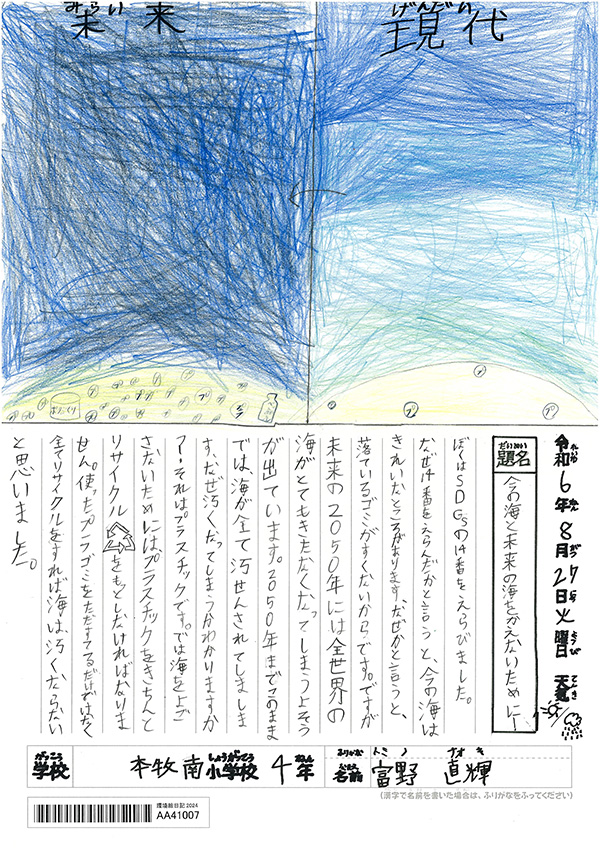 みらい
未来
げんだい
現代
プ
プ
プ
令和6年8月27日火曜日 天気
だいめい
題名
今の海と未来の海をかえないために!
ぼくはSDGsの14番をえらびました。
なぜ14番をえらんだかと言うと、今の海は
きれいなところがあります、なぜかと言うと、
落ているゴミがすくないからです。ですが
未来の2050年には全世界の
海がとてもきたなくなってしまうよそう
が出ています。2050年までこのまま
では、海が全て汚せんされてしまいま
す、なぜ汚くなってしまうかわかりますか
?それはプラスチックです。では海をよご
さないためには、プラスチックをきちんと
リサイクルをもとしなければなりま
せん。使ったプラゴミをただすてるだけではなく
全てリサイクルをすれば海は、汚くならない
と思いました。
がっこう
学校
本牧南小学校
しょうがっこう
4年
ねん
ふりがな
なまえ
名前
トミノ ナオキ
富野 直輝
(漢字で名前を書いた場合は、ふりがなをふってください)
環境絵日記2024
AA41007